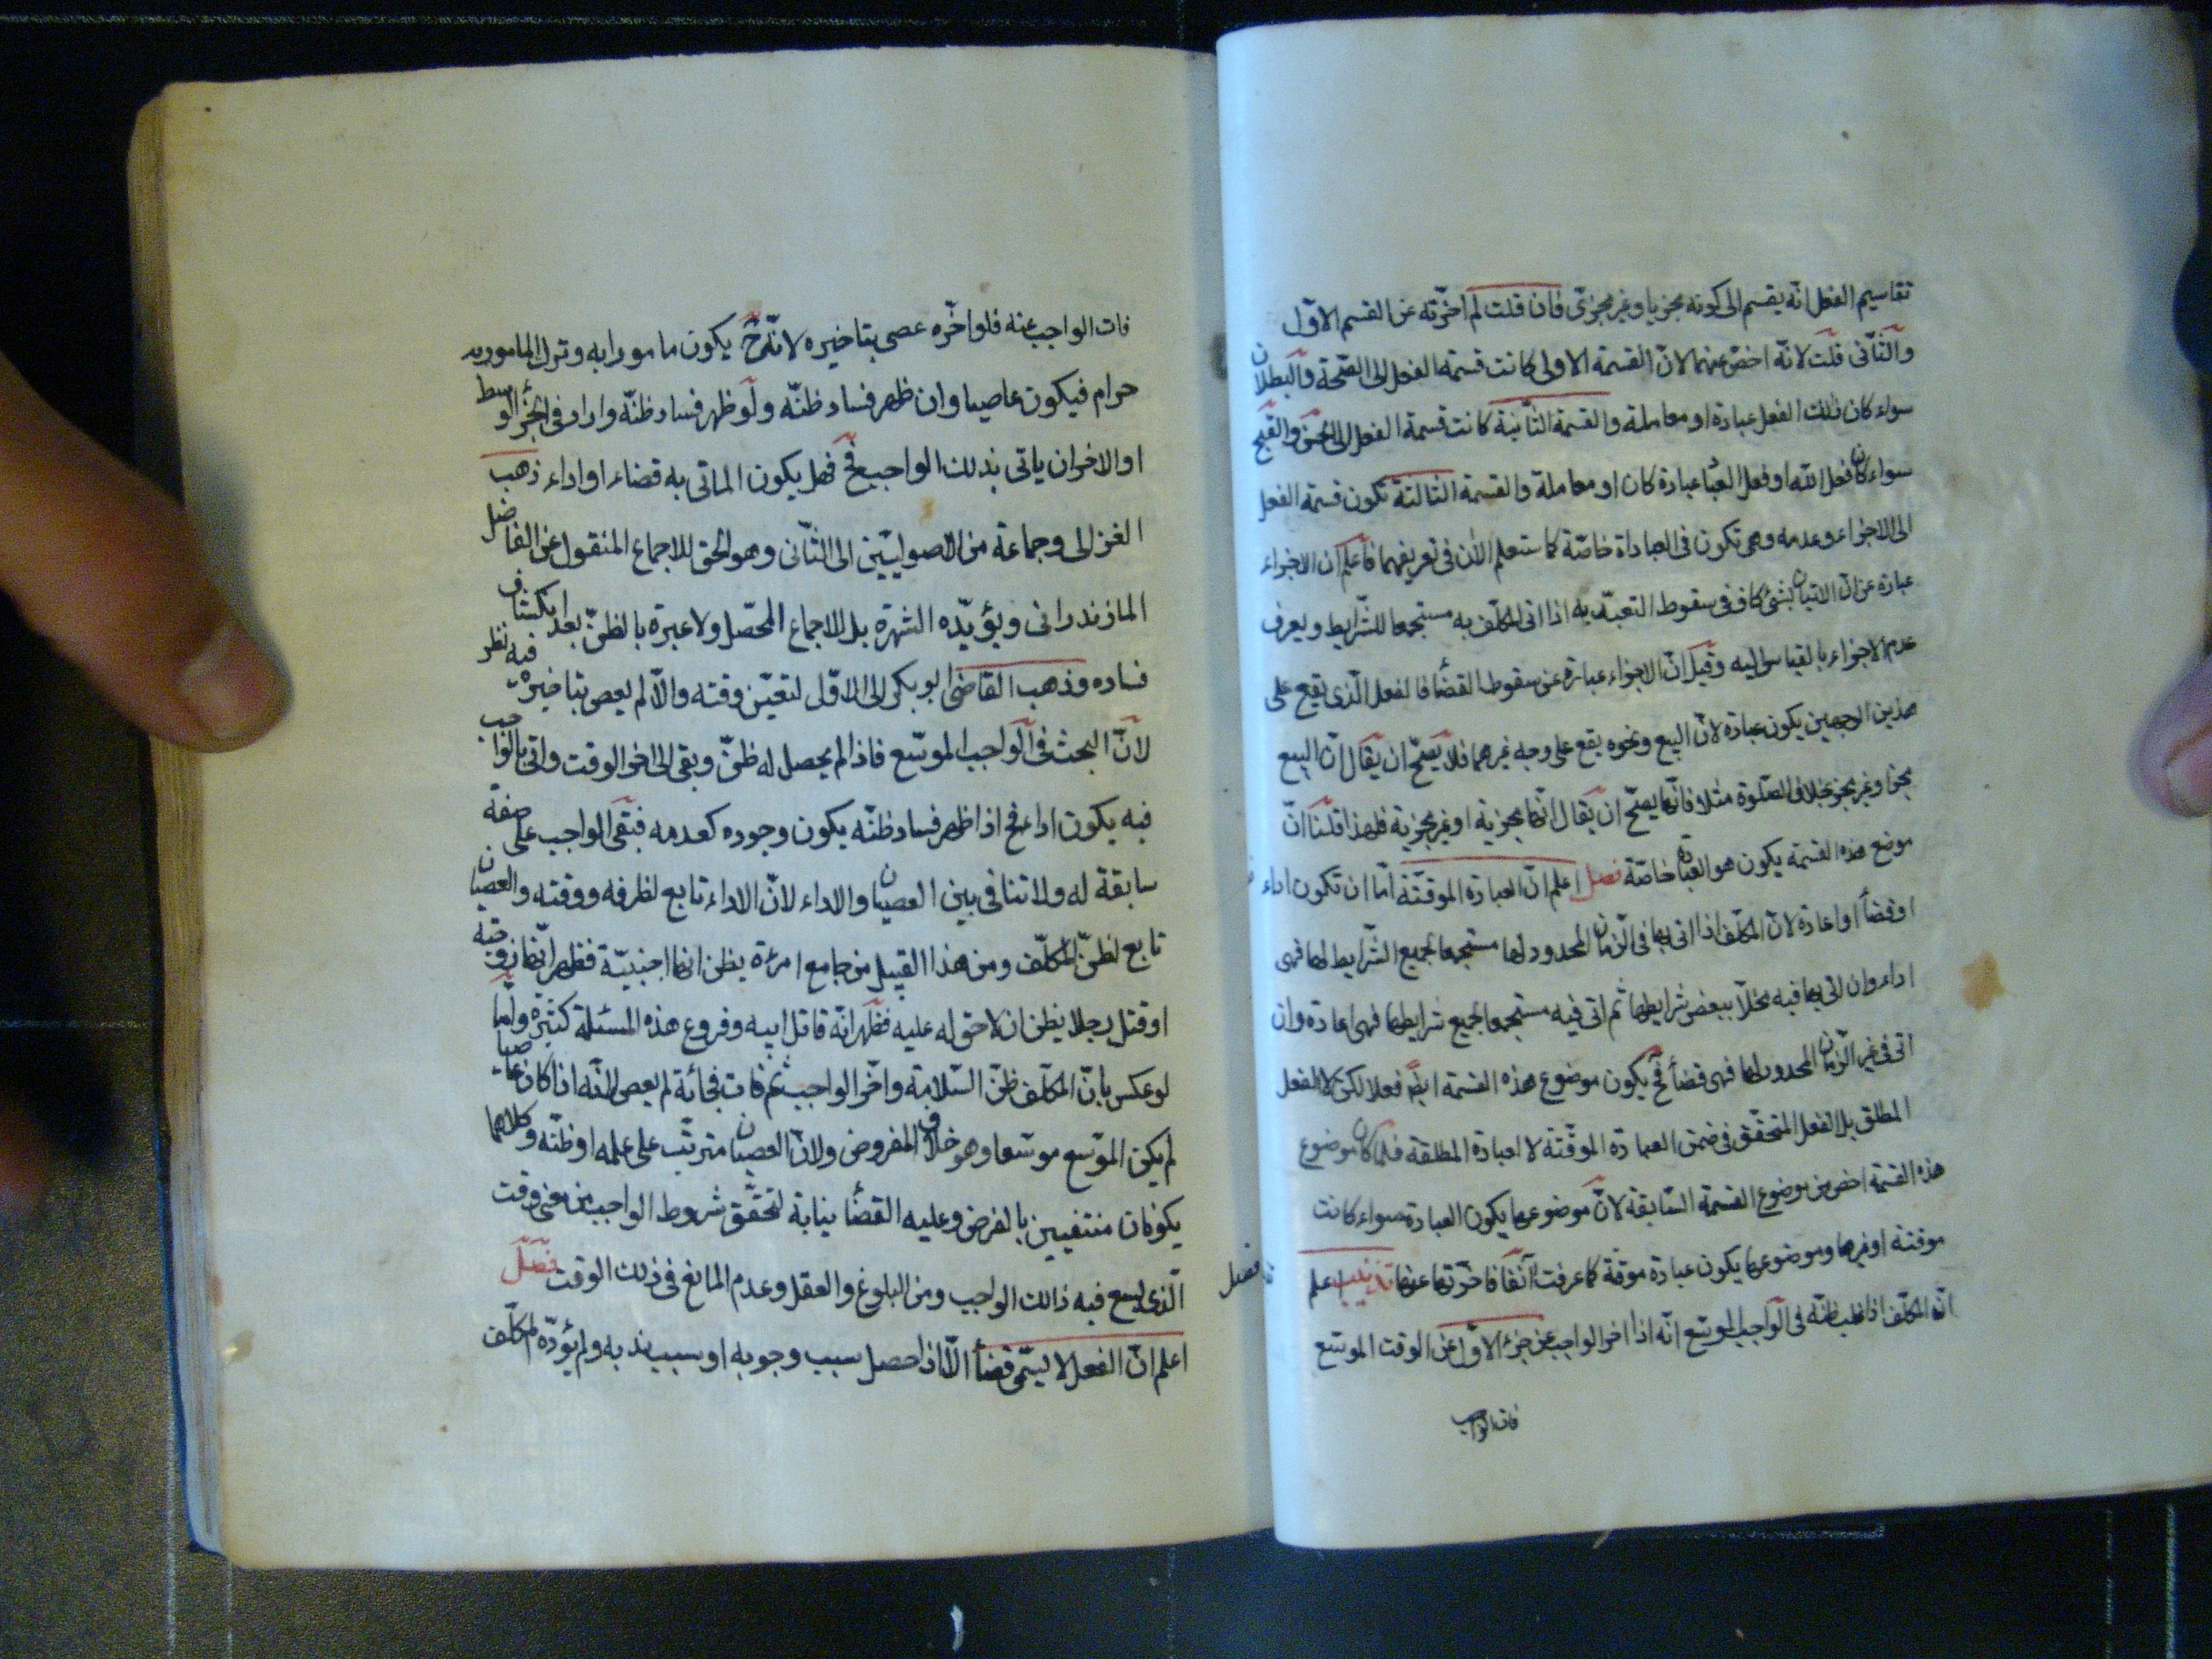 تقاسيم الفعل انّه يقسم الى كونه مجزيا وغير مجزىّ فان قلت لم اخّرته عن القسم الاوّل
والثّانى قلت لانّه اخصّ عنهما لانّ القسمة الاولى كانت قسمة الفعل الى الصّحة والبطلان
سواء كان ذلك الفعل عبادة او معاملة والقسمة الثّانية كانت قسمة الفعل الى الحسن والقبح
سواء كان فعل اللّه او فعل العباد عبادة كان او معاملة والقسمة الثالثة تكون قسمة الفعل
الى الاجزاء وعدمه وهى تكون فى العباداة خاصّة كما ستعلم الان فى تعريفهما فاعلم ان الاجزاء
عبارة عن انّ الاتيان بشئ كاف فى سقوط التعبّد به اذا اتى المكلّف به مستجمعا للشّرايط ويعرف
عدم الاجزاء بالقياس اليه وقيل انّ الاجزاء عبارة عن سقوط القضأ فالفعل الّذى يقع على
هذين الوجهين يكون عبادة لانّ البيع ونحوه يقع على وجه غيرهما فلا يصحّ ان يقال انّ البيع
مجز او غير مجز بخلاف الصّلوة مثلا فانّها يصحّ ان يقال انّها مجزية او غير مجزية فلهذا قلنا انّ
موضع هذه القسمة يكون هو العبادة خاصّة فصل اعلم انّ العبادة الموقتّة امّا ان تكون اداء
او قضأ او اعادة لانّ المكلّف اذا اتى بها فى الزّمان المحدود لها مستجمعا لجميع الشّرايط لها فهى
اداء وان اتى بها فيه مخلّا ببعض شرايطها ثم اتى فيه مستجمعا لجميع شرايطها فهى اعادة وان
اتى فى غير الزّمان المحدود لها فهى قضأ فح يكون موضوع هذه القسمة ايضا فعلا لكن لا الفعل
المطلق بل الفعل المتحقّق فى ضمن العبادة الموقّتة لا العبادة المطلقة فلمّا كان موضوع
هذه القسمة اخصّ من موضوع القسمة السّابقة لانّ موضوعها يكون العبادة سواء كانت
موقتة او غيرها وموضوعها يكون عبادة موقتة كما عرفت آنفا فاخّرتها عنها تذنيب اعلم
انّ المكلّف اذا غلب ظنّه فى الواجب الموسّع انّه اذا اخر الواجب عن جزء الاوّل عن الوقت الموسّع
فات الواجب
فات الواجب عنه فلو اخّره عصى بتاخيره لانّه ح يكون مامورا به وترك المامور به
حرام فيكون عاصيا وان ظهر فساد ظنّه ولو ظهر فساد ظنّه واراد فى الجزء الوسط
او الاخر ان ياتى بذلك الواجب فح فهل يكون الماتى به قضاء او اداء ذهب
الغزالى وجماعة من الاصوليّين الى الثّانى وهو الحق للاجماع المنقول عن الفاضل
المازندرانى ويؤيّده الشهرة بل الاجماع المحصّل ولا عبرة بالظنّ بعد انكشاف
فساده وذهب القاضى ابو بكر الى الاوّل لتعيّن وقته والّا لم يعص بتاخيره فيه نظر
لانّ البحث فى الواجب الموسّع فاذا لم يحصل له ظنّ وبقى الى اخر الوقت واتى بالواجب
فيه يكون اداء فح اذا ظهر فساد ظنّه يكون وجوده كعدمه فبقى الواجب على صفة
سابقة له ولا تنافى بين العصيان والاداء لانّ الاداء تابع لظرفه ووقته والعصيان
تابع لظنّ المكلّف ومن هذا القبيل من جامع امرءة يظن انها اجنبيّة فظهر انّها زوجته
او قتل رجلا يظن ان لا حق له عليه فظهر انّه قاتل ابيه وفروع هذه المسئلة كثيرة وامّا
لو عكس بانّ المكلّف ظنّ السّلامة واخّر الواجب ثم فات فجائة لم يعص لانّه اذا كان عاصيا
لم يكن الموّسع موسّعا وهو خلاف المفروض ولانّ العصيان مترتّب على علمه او ظنّه وكلاهما
يكونان منتفيين بالفرض وعليه القضأ بنابة لتحقّق شروط الواجب من مضى وقت
الّذى يسع فيه ذالك الواجب ومن البلوغ والعقل وعدم المانع فى ذلك الوقت فصل
اعلم انّ الفعل لا يسمّى قضأ الّا اذا حصل سبب وجوبه او سبب ندبه ولم يؤدّه المكلّف